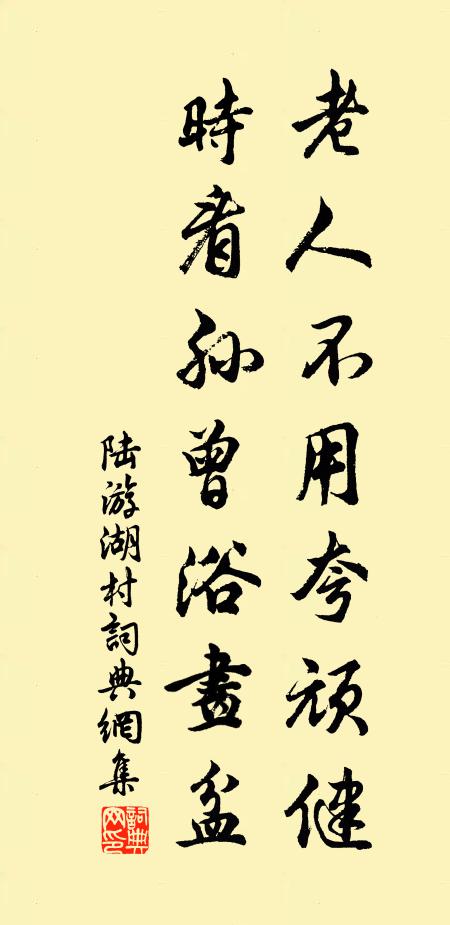 老人不用夸頑健
時看孫曾浴畫盆
陸游湖村詞典網集
詞典網印